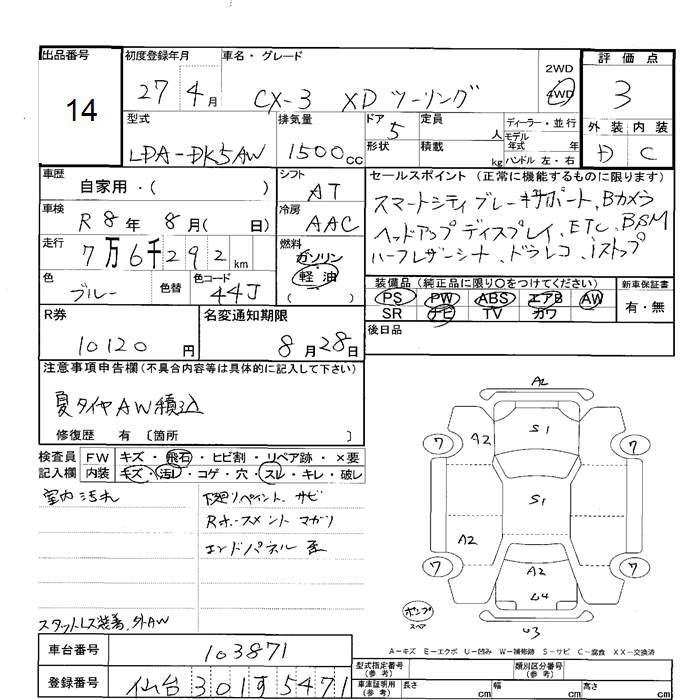 出品番号 14
初度登録年月 27 4月
車名・グレード CX-3 XD ツーリング
2WD
4WD
評価点 3
外装 内装
D C
型式 LDA-DK5AW
排気量 1500cc
ドア 5
形状
定員 人
積載 kg
ディーラー・並行
モデル
年式 年
ハンドル 左・右
車歴 自家用・( )
シフト AT
車検 R8年 8月( 日)
冷房 AAC
走行 7万6千292km
燃料 ガソリン
軽油
( )
色 ブルー 色替
色コード 44J
セールスポイント (正常に機能するものに限ります)
スマートシティブレーキサポート、Bカメラ
ヘッドアップディスプレイ、ETC、BSM
ハーフレザーシート、ドラレコ、iストップ
装備品(純正品に限り○をつけてください)
PS PW ABS エアB AW
SR ナビ TV カワ
新車保証書
有・無
後日品
R券 10120円
名変通知期限 8月28日
注意事項申告欄(不具合内容等は具体的に記入して下さい)
夏タイヤAW積込
修復歴 有 〔箇所 〕
検査員 FW キズ・飛石・ヒビ割・リペア跡・×要
記入欄 内装 キズ・汚レ・コゲ・穴・スレ・キレ・破レ
室内汚れ
下廻リペイント、サビ
Rホースメント マガリ
エンドパネル 歪
スタットレス装着、外AW
A2
A2 S1
7 7
S1
A2
A2
7 7
U4
U3
ポンプ
スペア
A-キズ E-エクボ U-凹み W-補修跡 S-サビ C-腐食 XX-交換済
車台番号 103871
登録番号 仙台 301 す 5471
型式指定番号
(参考)
類別区分番号
(参考)
車庫証明用
(参考)
長さ cm 幅 cm 高さ cm